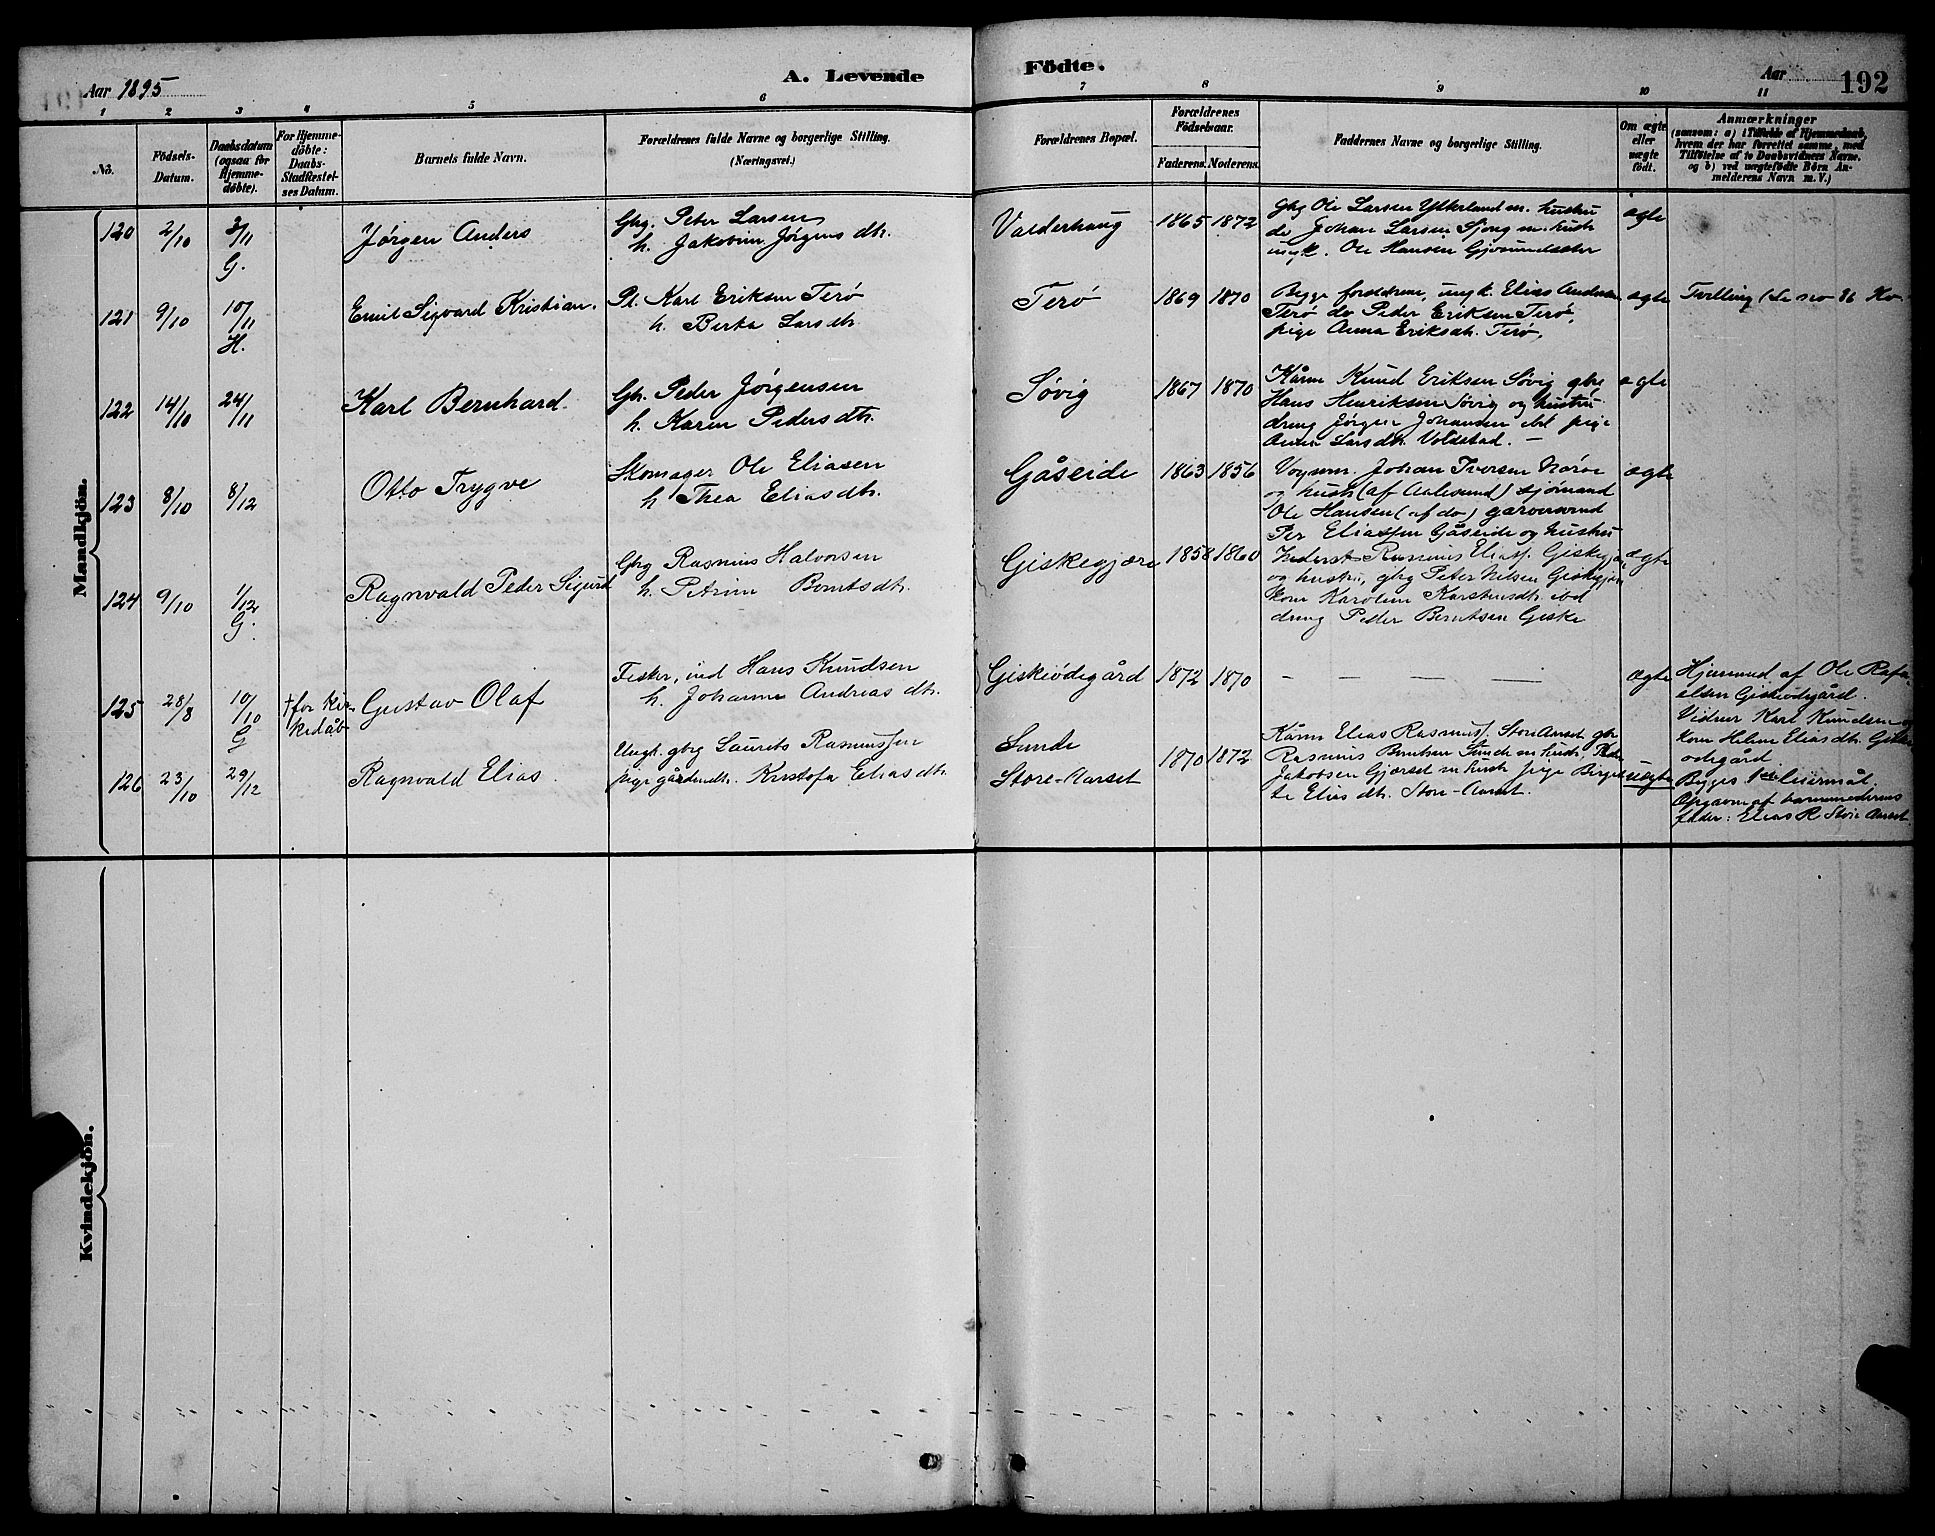 Aar 1895
A. Levende
Födte.
Aar
192
1 2 3 4 5 6 7 8 9 10 11
No.
Födsels-
Datum.
Daabsdatum
(ogsaa for
Hjemme-
döbte).
For Hjemme-
döbte:
Daabs-
Stadfæstel-
ses Datum.
Barnets fulde Navn.
Forældrenes fulde Navne og borgerlige Stilling.
(Næringsvei.)
Forældrenes Bopæl.
Forældrenes
Födselsaar.
Faderens. Moderens.
Faddernes Navne og borgerlige Stilling.
Om ægte
eller
uægte
født.
Anmærkninger
(saasom: a) i Tilfælde af Hjemmedaab,
hvem der har forrettet samme, med
Tilföielse af to Daabsvidners Navne,
og b) ved uægtefödte Börn An-
melderens Navn m. V.)
Mandkjön.
120 2/10 3/11 G. Jørgen Anders
Gbg. Peter Larsen
h. Jakobine Jørgensdtr.
Valderhaug 1865 1872
gbg Ole Larsen Ytterland m. hustru
do Johan Larsen Sjong m. hustr
ungk. Ole Hansen Gjøsundsæter
ægte
121 9/10 10/11 H. Emil Sigvard Kristian.
Pl. Karl Eriksen Terø
h. Berta Larsdtr.
Terø 1869 1870
Begge forældrene, ungk. Elias Andersen
Terø do Peder Eriksen Terø,
pige Anna Eriksdtr. Terø.
ægte
Tvilling (Se no 96 Kv.
122 14/10 24/11 Karl Bernhard.
Gbr. Peder Jørgensen
h. Karen Pedersdtr.
Søvig 1867 1870
Kårm Knud Eriksen Søvig gbr
Hans Henriksen Søvig og hustru
dreng Jørgen Johansen ibd pige
Anna Larsdtr. Voldstad. —
ægte
123 8/10 8/12 Otto Trygve
Skomager Ole Eliasen
h. Thea Eliasdtr.
Gåseide 1863 1856
Vognm. Johan Iversen Nørve
og hustr (af Aalesund) sjømand
Ole Hansen (af do) garversvend
Per Eliassen Gåseide og hustru
ægte
124 9/10 1/12 G. Ragnvald Peder Sigurd
Gbg Rasmus Halvorsen
h. Petrine Berntsdtr.
Giskegjære 1858 1860
Inderst Rasmus Eliass. Giskegjær
og hustru, gbg Peter Nilsen Giskegjær
kone Karoline Karstensdtr. ibd
dreng Peder Berntsen Giske
ægte
125 28/8 10/10 G † før kir-
kedåb
Gustav Olaf
Fisker, ind Hans Knudsen
h. Johanne Andreasdtr.
Giskeødegård 1872 1870
— — — —
ægte
Hjemmed af Ole Rafa-
elsen Giskeødegård.
Vidner Karl Knudsen og
kone Helene Eliasdtr. Giske-
ødegård
126 23/10 29/12 Ragnvald Elias.
Ungk. gbrg Laurits Rasmussen
pige gårdmdtr. Kristofa Eliasdtr.
Sunde
Store-Aarset
1870 1872
Kårm Elias Rasmuss. Store Aarset gbr
Rasmus Berntsen Sunde m hustr, Peder
Jakobsen Gjærset m hustr pige Berget-
te Eliasdtr. Store-Aarset.
uægte
Begges 1ste leiermål.
Opgavn af barnemoderens
fader: Elias R Store Aarset.
Kvindekjön.